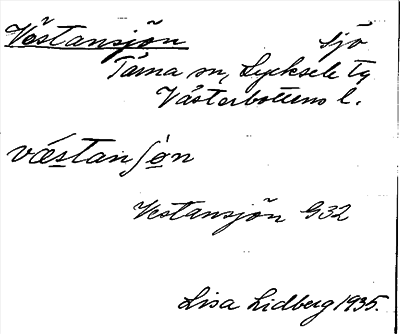 Västansjön sjö
Tärna sn, Lycksele tg
Västerbottens l.
væstanſøn
Vestansjön G32
Lisa Lidberg 1935.